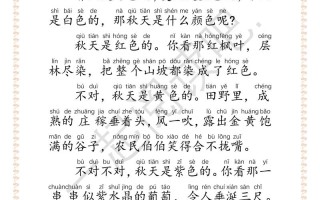 shì bái sè de nà qiū tiān shì shén me yán sè ne
是白色的，那秋天是什么颜色呢？
qiū tiān shì hóng sè de nǐ kàn nà hóng fēng yè céng
秋天是红色的。你看那红枫叶，层
lín jìn rǎn bǎ zhěng gè shān pō dōu rǎn chéng le hóng sè
林尽染，把整个山坡都染成了红色。
bú duì qiū tiān shì huáng sè de tián yě lǐ chéng
不对，秋天是黄色的。田野里，成
shú de zhuāng jia chuí zhe tóu fēng yì chuī lòu chū jīn huáng bǎo
熟的庄稼垂着头，风一吹，露出金黄饱
mǎn de gǔ zi nóng mín bó bo xiào de hé bù lǒng zuǐ
满的谷子，农民伯伯笑得合不拢嘴。
bú duì bú duì qiū tiān shì zǐ sè de nǐ kàn nà yí
不对不对，秋天是紫色的。你看那一
chuànchuàn sì zǐ shuǐ jīng de pú táo lìng rén chuí xián sān chǐ
串串似紫水晶的葡萄，令人垂涎三尺。